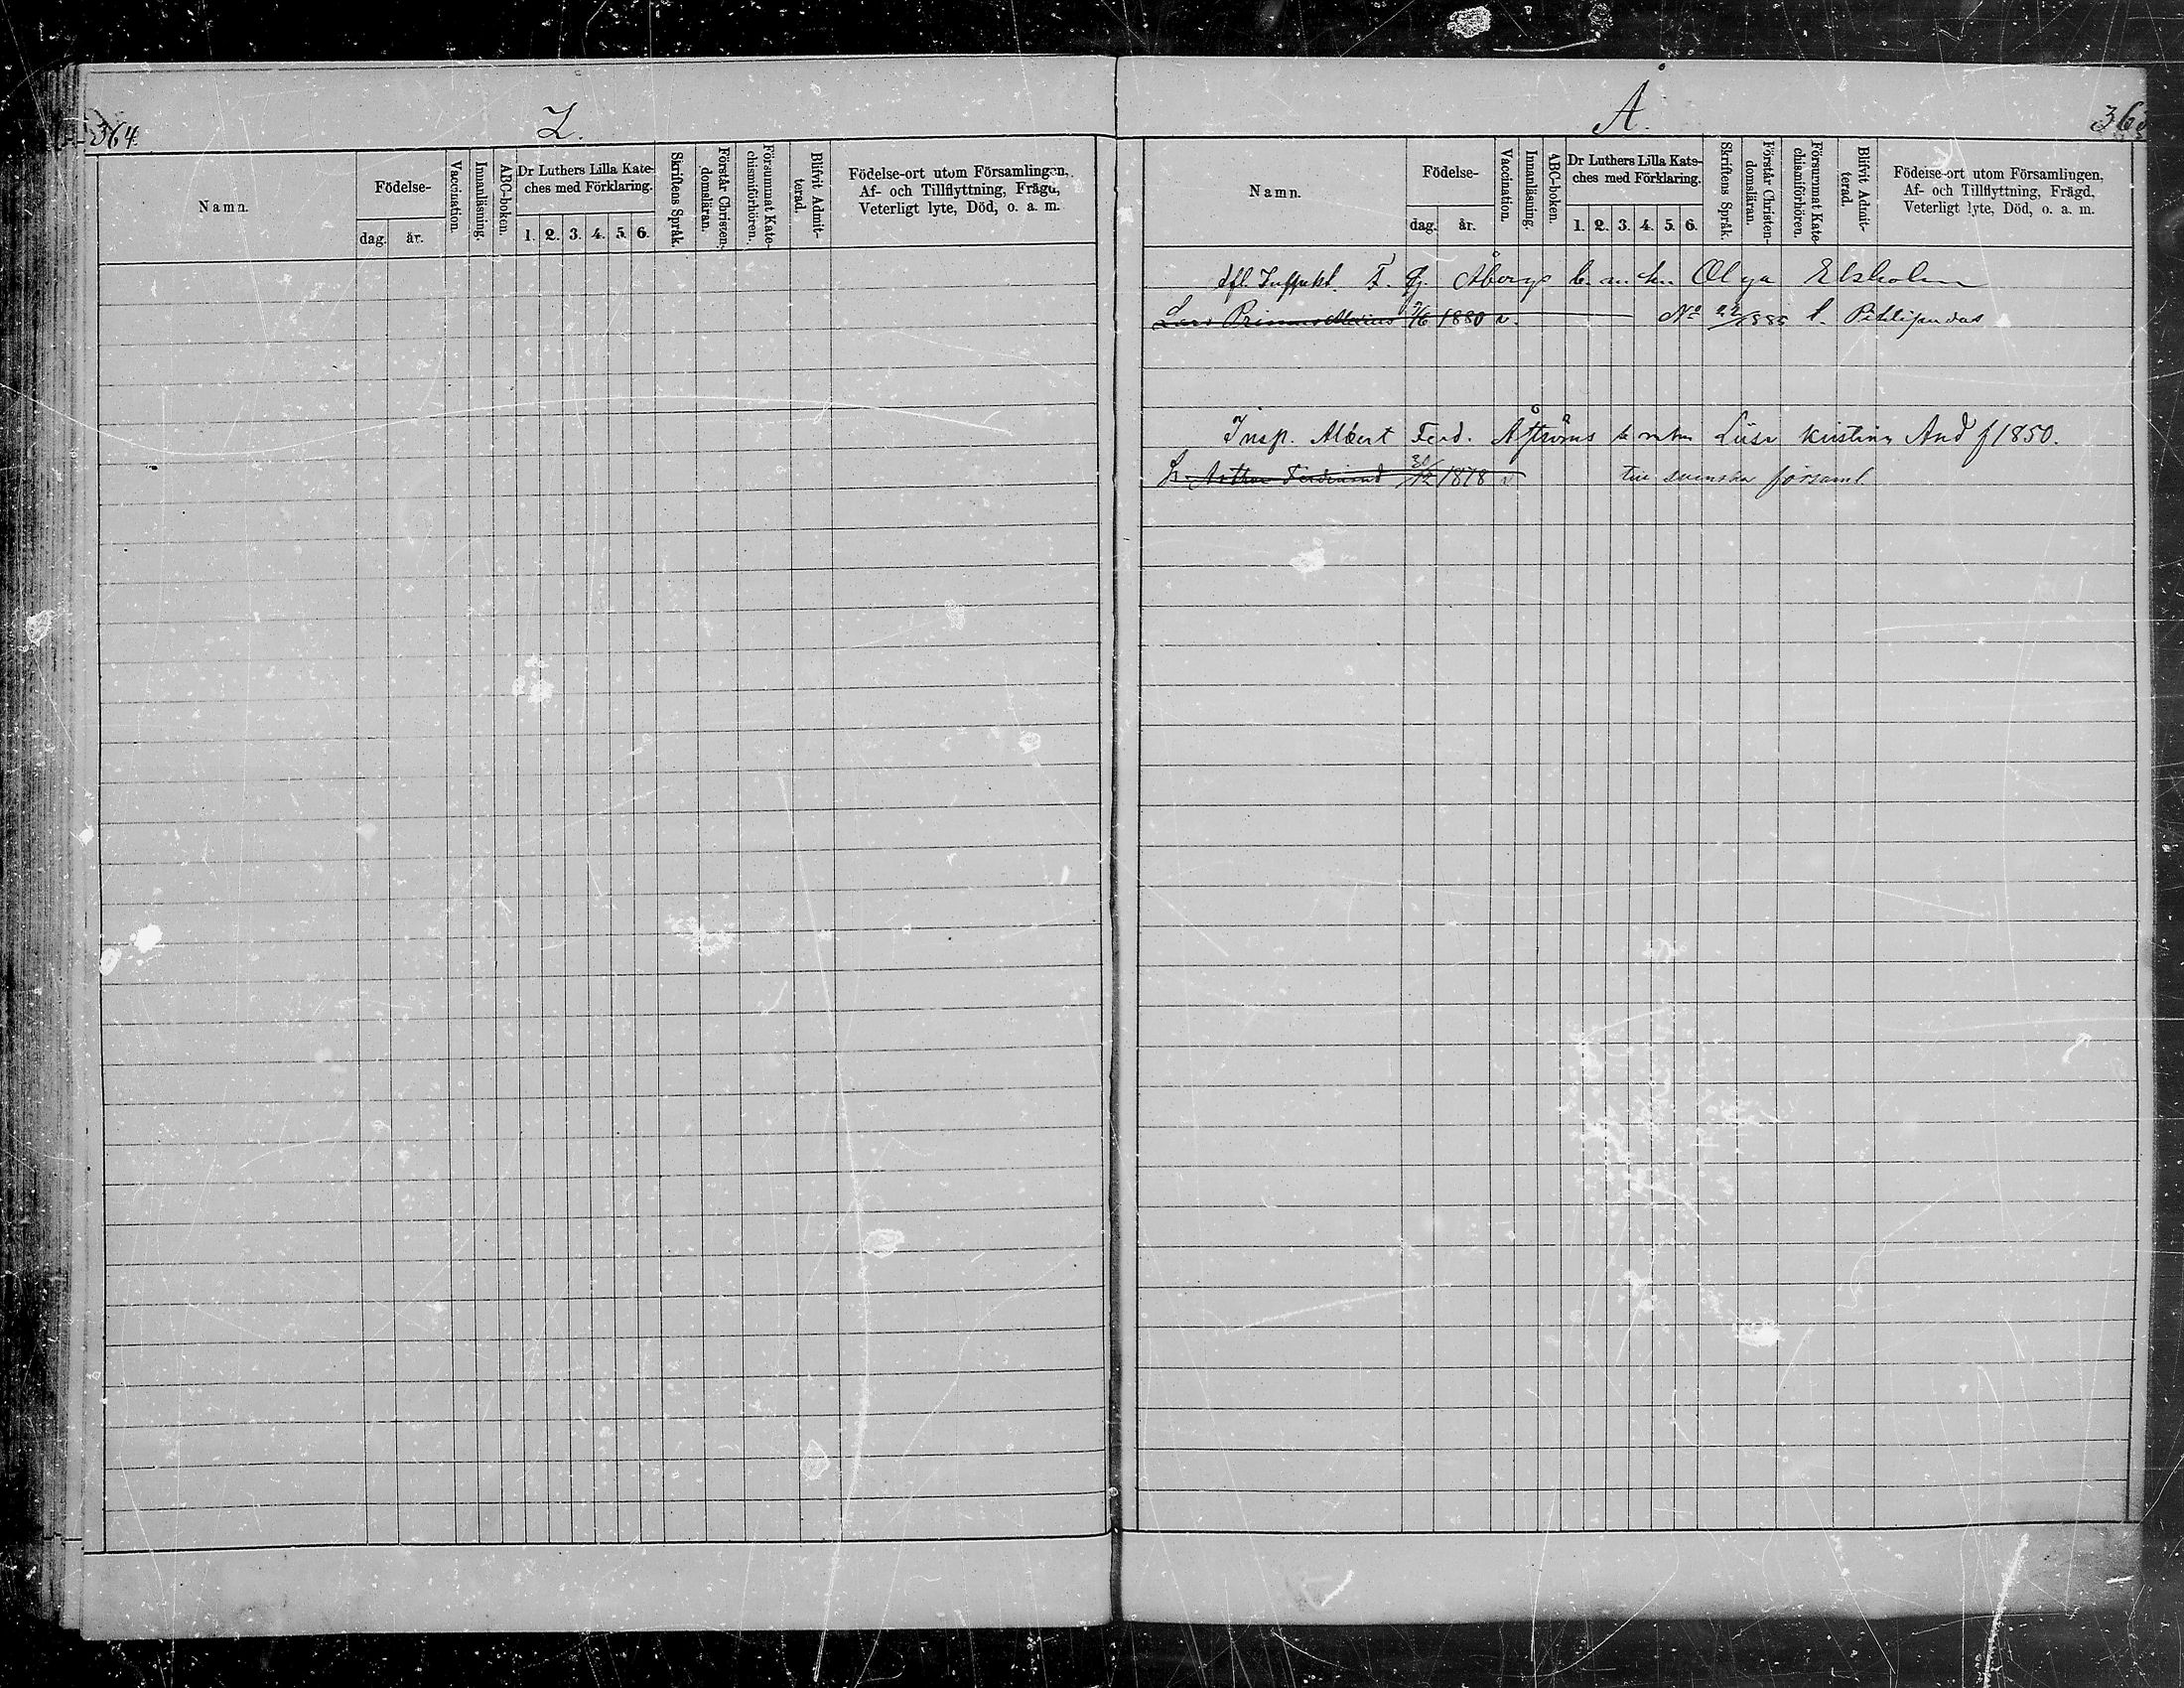 364.
Z.
Namn.
Födelse-
dag.
år.
Vaccination.
Innanläsning.
ABC-boken.
Dr Luthers Lilla Kate-
ches med Förklaring.
1. 2. 3. 4. 5. 6.
Skriftens Språk.
Förstår Christen-
domsläran.
Försummat Kate-
chismiförhören.
Blifvit Admit-
terad.
Födelse-ort utom Församlingen,
Af- och Tillflyttning, Frägd,
Veterligt lyte, Död, o. a. m.
Å.
36
Namn.
Födelse-
dag.
år.
Vaccination.
Innanläsning.
ABC-boken.
Dr Luthers Lilla Kate-
ches med Förklaring.
1. 2. 3. 4. 5. 6.
Skriftens Språk.
Förstår Christen-
domsläran.
Försummat Kate-
chismiförhören.
Blifvit Admit-
terad.
Födelse-ort utom Församlingen,
Af- och Tillflyttning, Frägd,
Veterligt lyte, Död, o. a. m.
F. Åbergs Olga Elsholm
Lars Primus 1880 v. No 22/1885 t.
Insp. Albert Ferd. Åströms Kristina And f 1850.
Arthur Ferdinand 30/12 1878 v svenska församl.